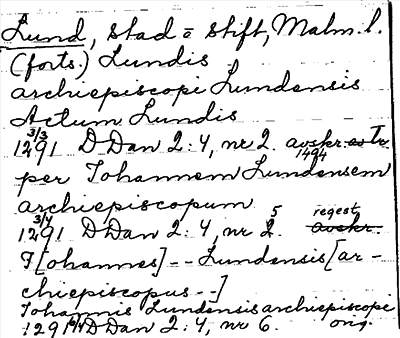 Lund, stad o stift, Malm. l.
(forts.) Lundis
archiepiscopi Lundensis
Actum Lundis
3/3
1291 D Dan 2:4, nr 2. avskr. 1494
per Johannem Lundensem
archiepiscopum
3/4 5 regest
1291 D Dan 2:4, nr 2. avskr.
J[ohannes] -- Lundensis [ar-
chiepiscopus --]
Johannis Lundensis archiepiscopi
1291 D Dan 2:4, nr 6. orig.